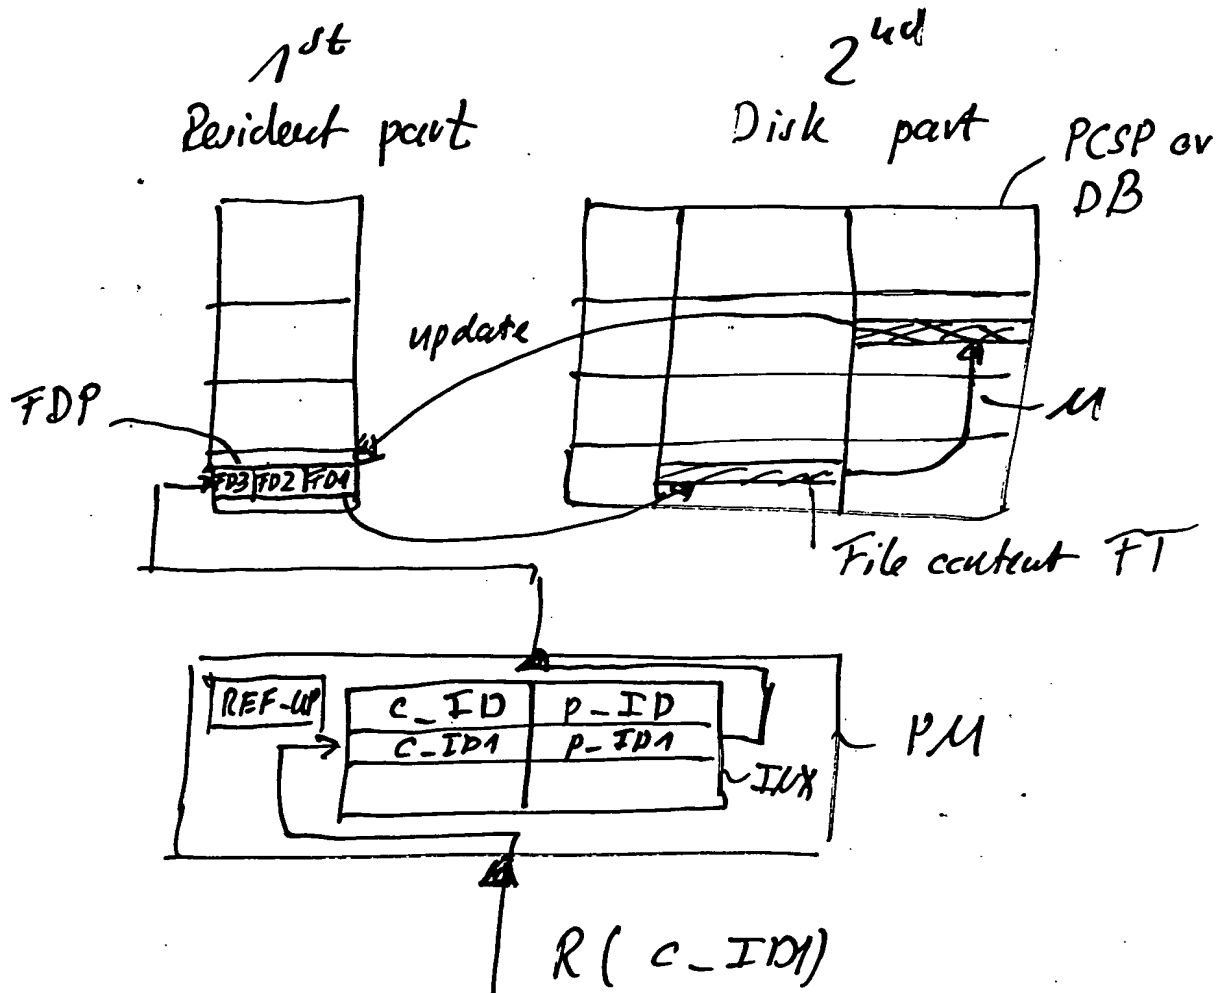 1st
Resident part
2nd
Disk part
PCSP or
DB
update
FDP
FD3 FD2 FD1
M
File content FT
REF-UP
c_ID p_ID
c_ID1 p_ID1
INX
PM
R ( c_ID1)